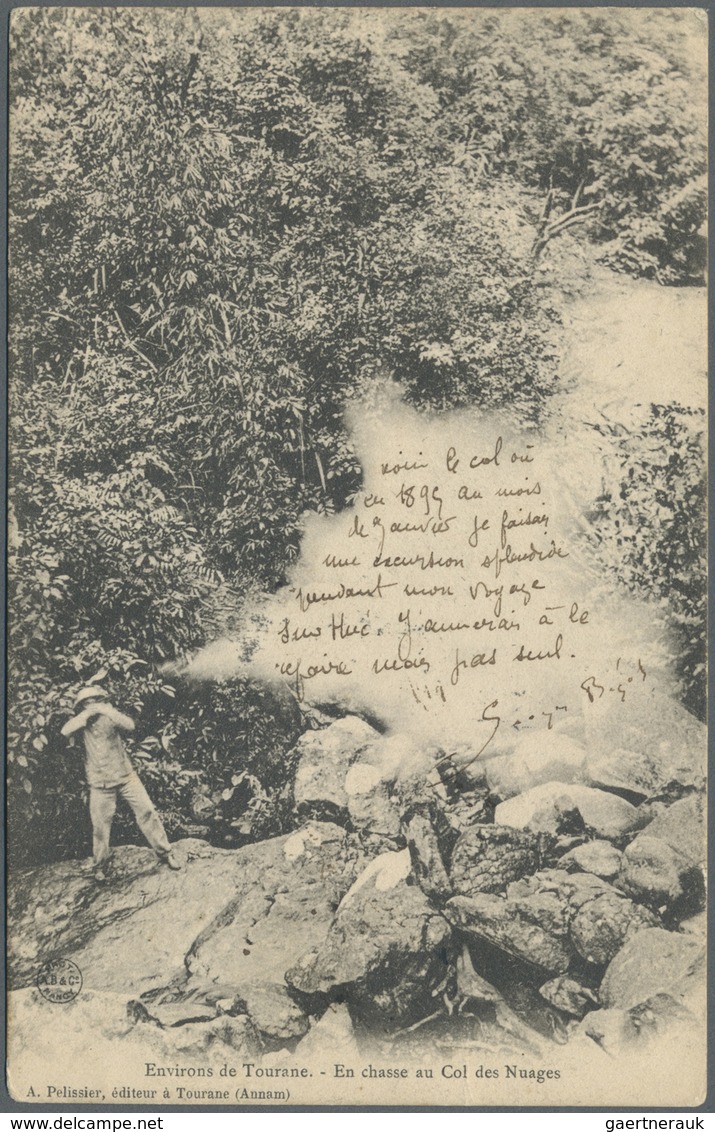 voici le col où
en 1895 au mois
de Janvier je faisais
une excursion splendide
pendant mon voyage
sur Hué. J'aimerais à le
refaire mais pas seul.
A.B&Co
NANCY
Environs de Tourane. - En chasse au Col des Nuages
A. Pelissier, éditeur à Tourane (Annam)
gaertnerauk